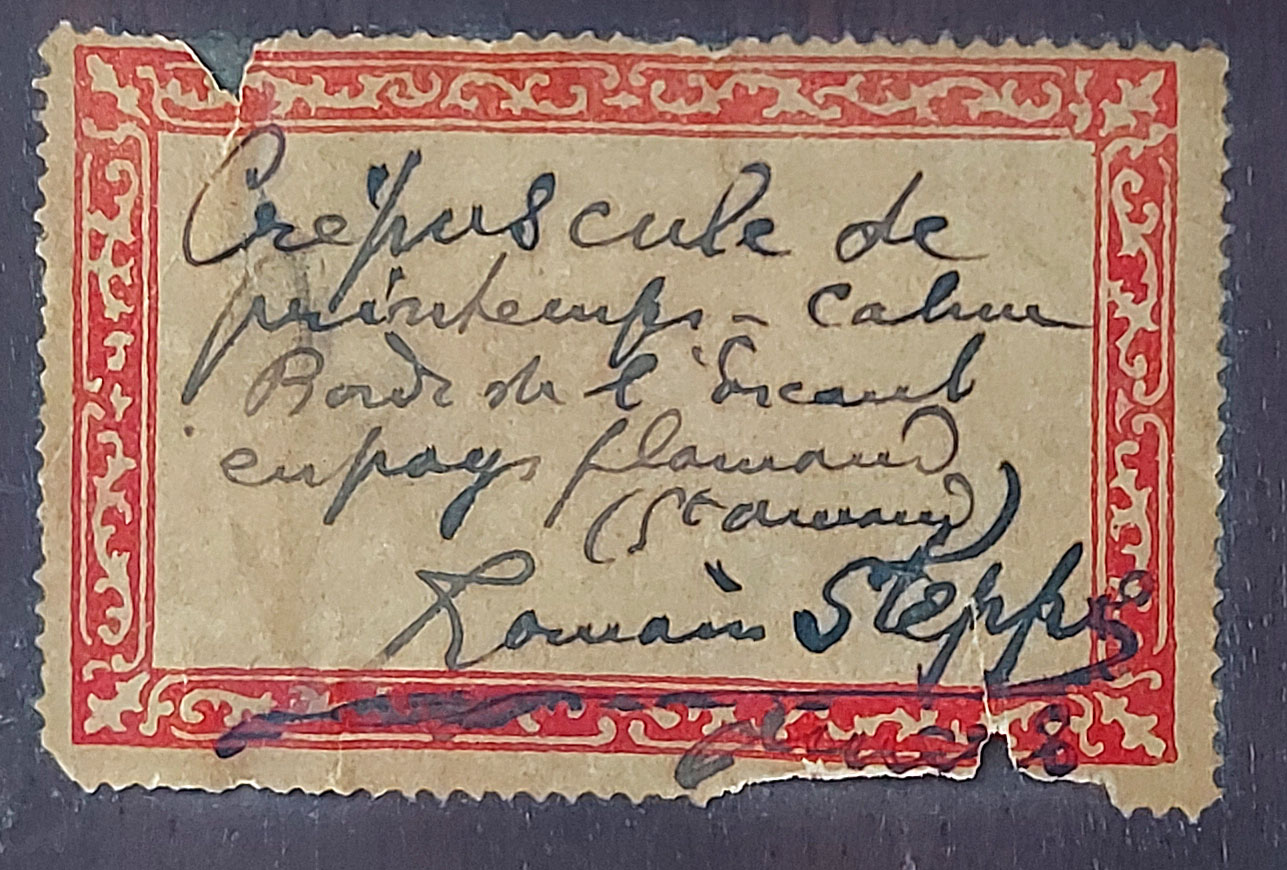 Crépuscule de
printemps - calme
Bords de l'Escaut
en pays flamand
(St Amand)
Romain Steppe